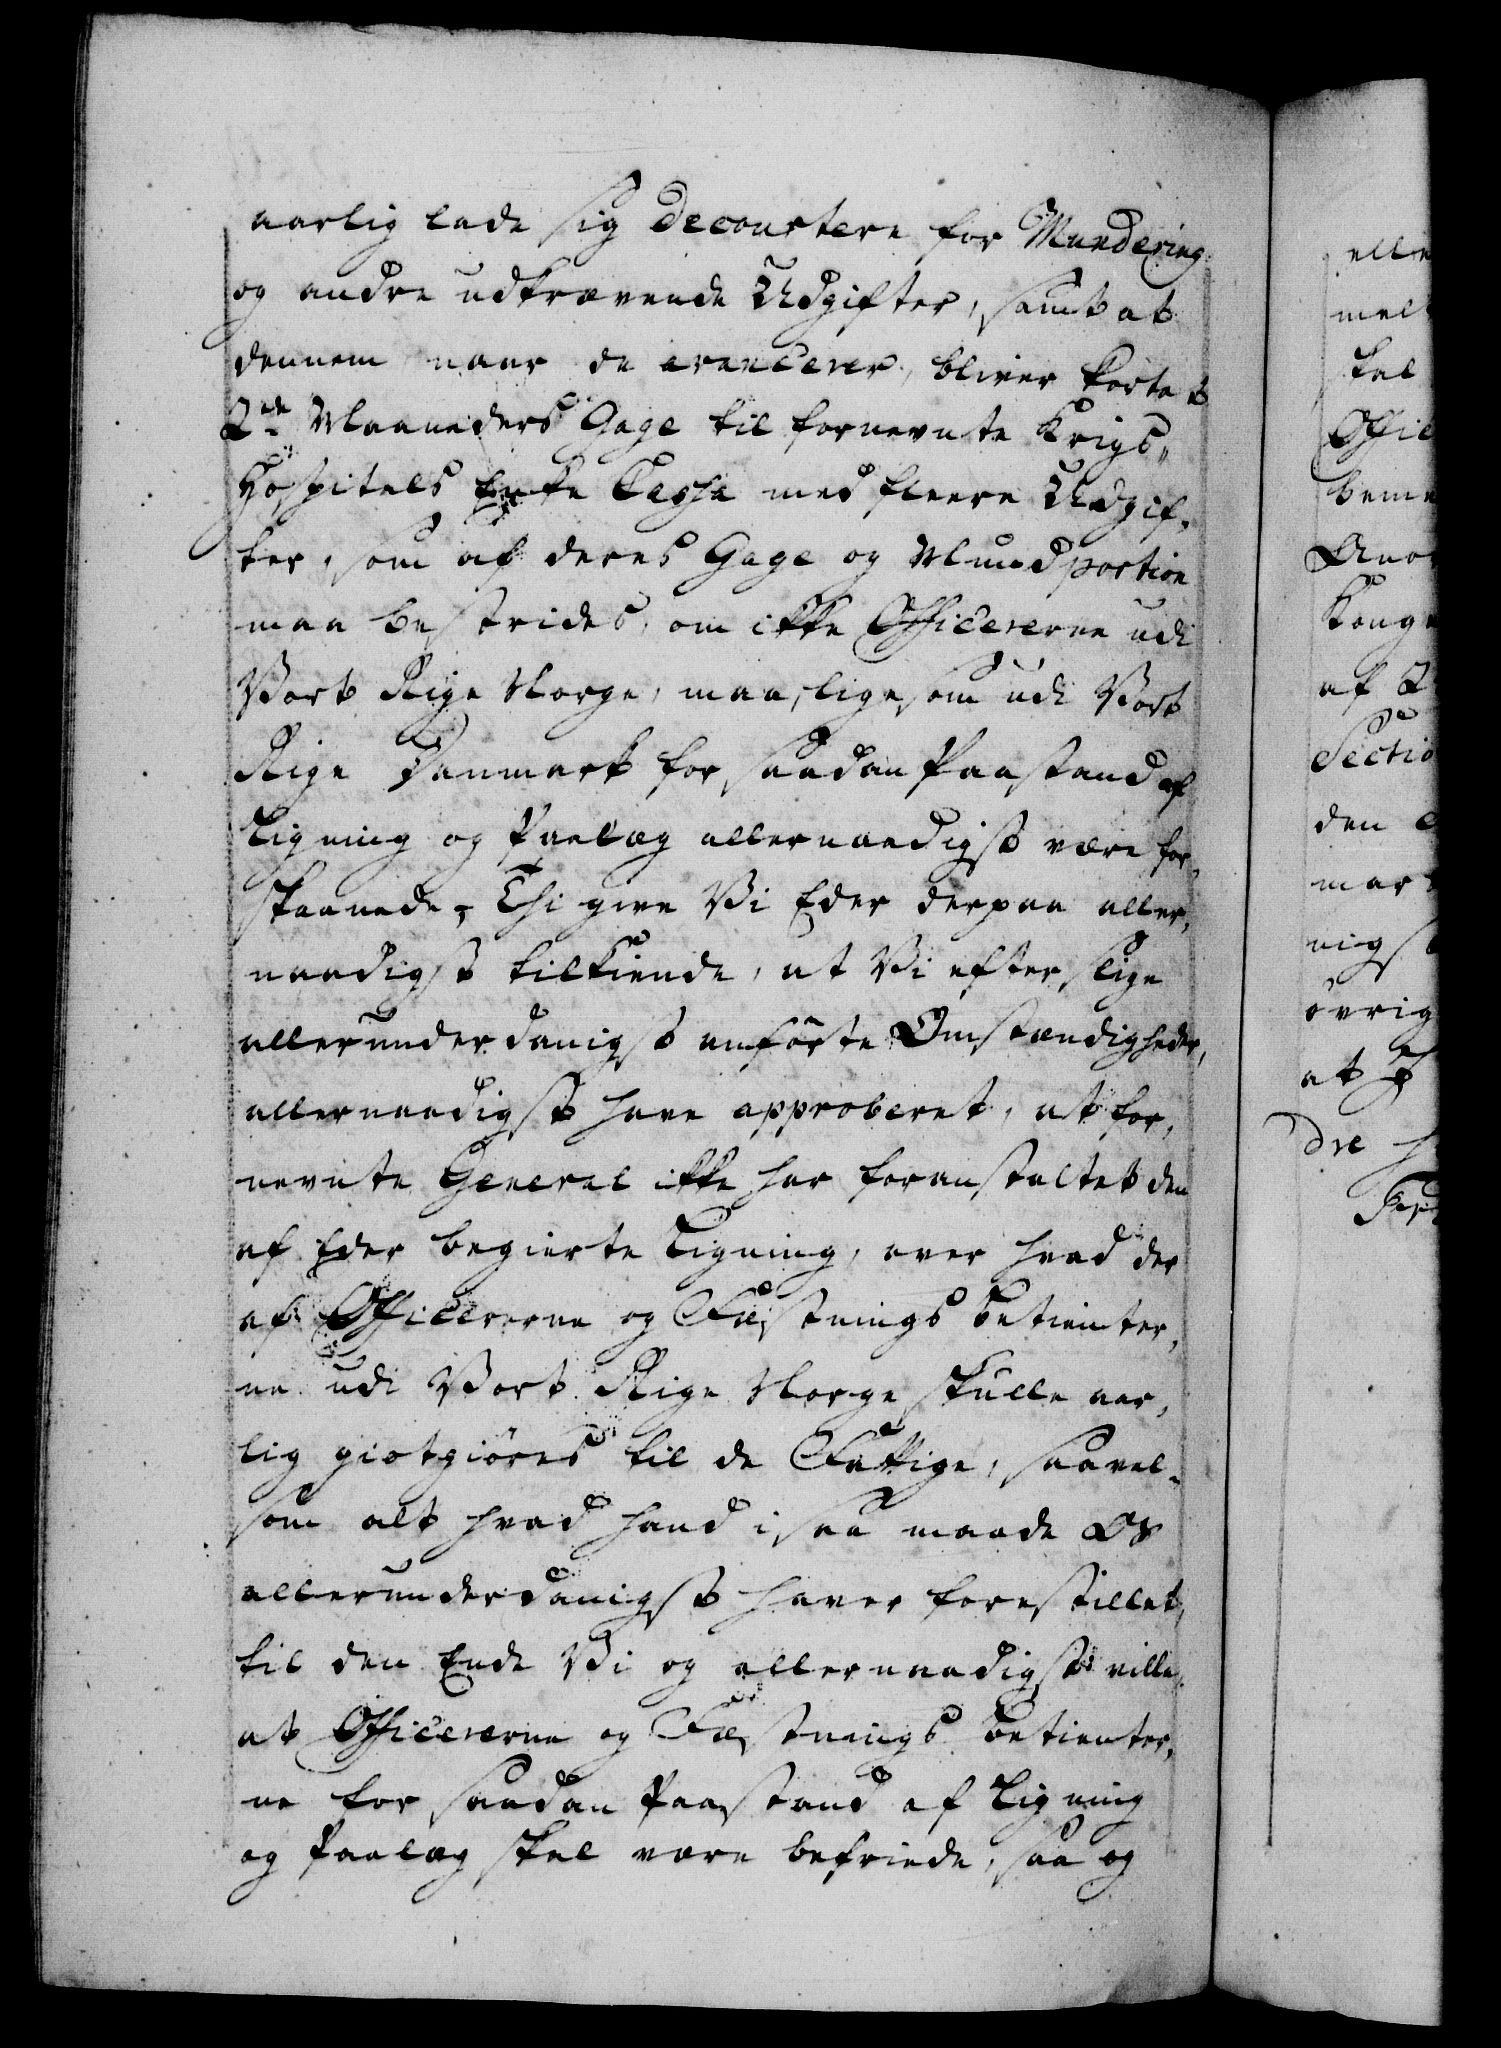 aarlig lade sig decourtere for Mundering
og andre udkrævende Udgifter, samt at
dennem naar de avancerer, bliver kortet
2de Maaneders Gage til fornevnte Krigs„
Hospitals Enke Cassa med fleere Udgif„
ter, som af deres Gage og Mundportion
maa bestrides, om ikke Officererne udi
Vort Rige Norge, maa, ligesom udi Vort
Rige Danmark for saadan Paastand af
Ligning og Paalæg allernaadigst være for„
skaanede, Thi give Vi Eder derpaa aller„
naadigst tilkiende, at Vi efter slige
allerunderdanigst anførte Omstændigheder,
allernaadigst have approberet, at for„
nevnte General ikke har foranstaltet den
af Eder begierte Ligning, over hvad der
af Officererne og Fæstnings betienter„
ne udi Vort Rige Norge skulle aar„
lig giotgiøres til de Fattige, saavel„
som alt hvad hand i saa maade Os
allerunderdanigst haver forestillet,
til den Ende Vi og allernaadigst ville,
at Officererne og Fæstnings betienter„
ne for saadan Paastand af Ligning
og Paalæg skal være befriede, saa og
elle
mel
skal
Offic
beme
Anor
Konge
af 2
Sectio
den
mar
nigst
øvrig
at
dre